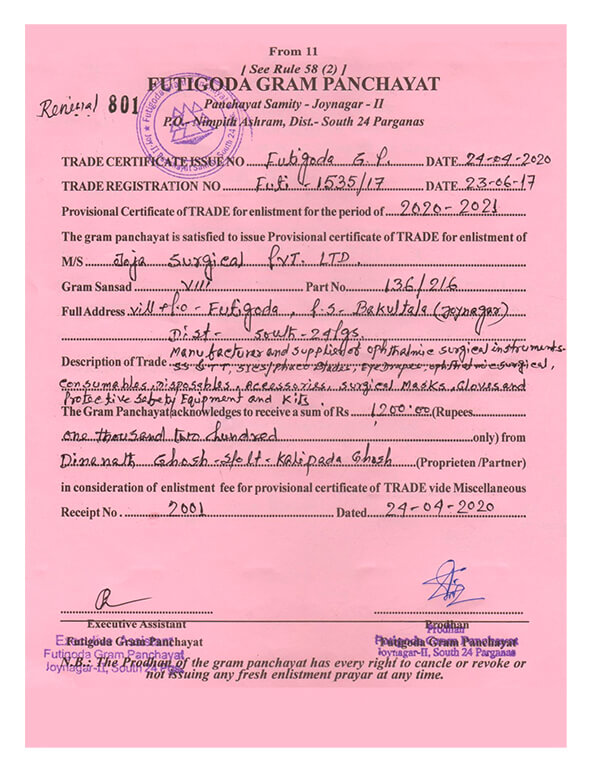 From 11
[ See Rule 58 (2) ]
FUTIGODA GRAM PANCHAYAT
Renewal 801
Panchayat Samity - Joynagar - II
P.O.- Nimpith Ashram, Dist.- South 24 Parganas
TRADE CERTIFICATE ISSUE NO Futigoda G.P. DATE 24-04-2020
TRADE REGISTRATION NO Futi - 1535/17 DATE 23-06-17
Provisional Certificate of TRADE for enlistment for the period of 2020-2021
The gram panchayat is satisfied to issue Provisional certificate of TRADE for enlistment of
M/S Joja Surgical Pvt. LTD.
Gram Sansad VIII Part No. 136/216
Full Address vill+P.O - Futigoda, P.S- Bakultala (Joynagar)
Dist- South-24 Pgs.
Manufacturer and supplier of ophthalmic surgical instruments-
Description of Trade Blades, Eye Drapes, ophthalmic surgical,
Consumables, Disposables, Accessories, surgical Masks, Gloves and
Protective Safety Equipment and Kits
The Gram Panchayat acknowledges to receive a sum of Rs 1200.00 (Rupees
one thousand two hundred only) from
Dinanath Ghosh - S/o Lt - Kalipada Ghosh (Proprieten /Partner)
in consideration of enlistment fee for provisional certificate of TRADE vide Miscellaneous
Receipt No. 2001 Dated 24-04-2020
Executive Assistant
Futigoda Gram Panchayat
Executive Assistant
Futigoda Gram Panchayat
Joynagar-II, South 24 Pgs
Prodhan
Futigoda Gram Panchayat
Prodhan
Futigoda Gram Panchayat
Joynagar-II, South 24 Parganas
N.B.: The Prodhan of the gram panchayat has every right to cancle or revoke or
not issuing any fresh enlistment prayar at any time.